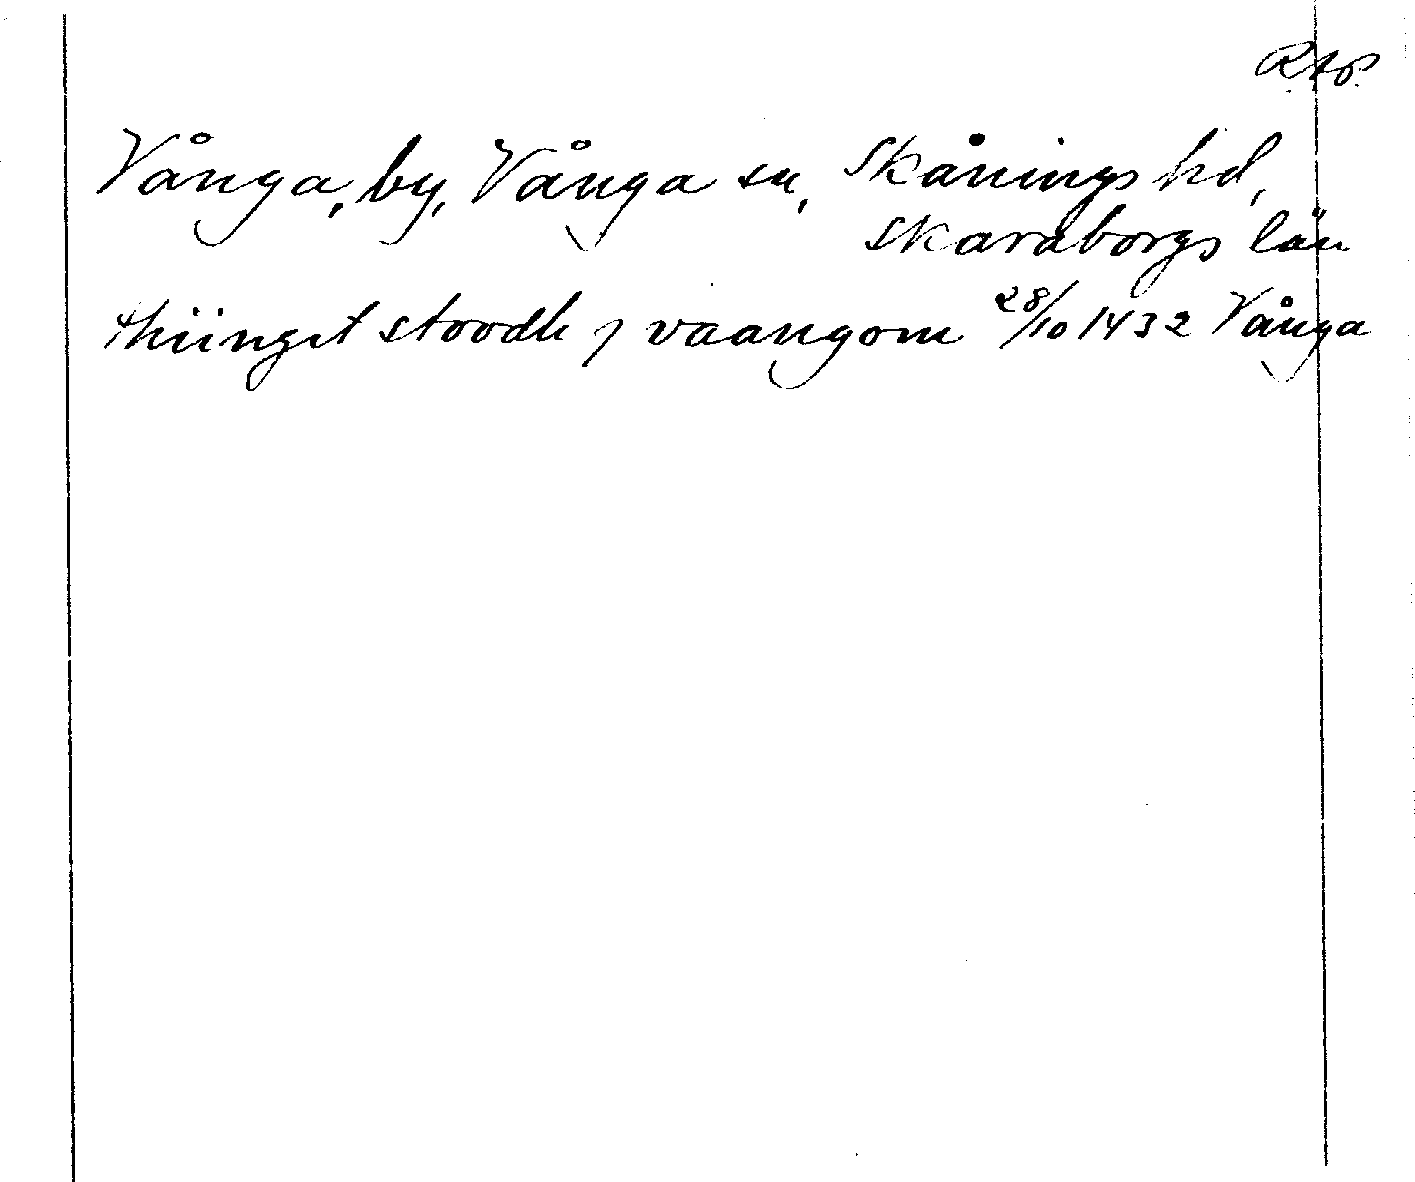 R.A.P.
Vånga, by, Vånga sn, Skånings hd,
Skaraborgs län
thiinget stoodh j vaangom 28/10 1432 Vånga